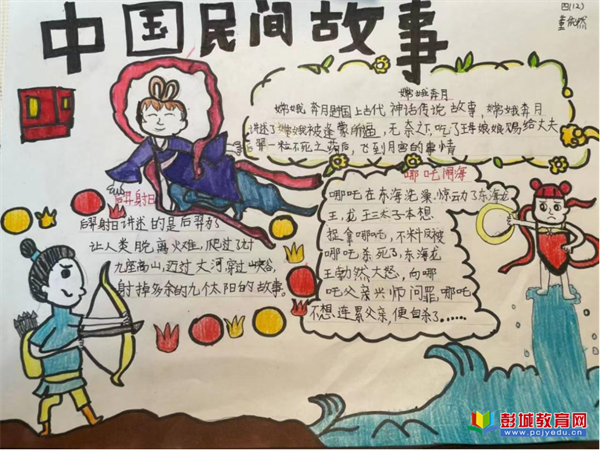 中国民间故事
四(12)
嫦娥奔月
嫦娥奔月是中国上古代神话传说故事,嫦娥奔月
讲述了嫦娥被逢蒙所逼,无奈之下,吃了王母娘娘赐给丈夫
羿一粒不死之药后,飞到月宫的事情
后羿射日
后羿射日讲述的是后羿为了
让人类脱离火难,爬过了九十
九座高山,迈过大河穿过峡谷
射掉多余的九个太阳的故事。
哪吒闹海
哪吒在东海洗澡,惊动了东海龙
王,龙王三太子本想
捉拿哪吒,不料反被
哪吒杀死了,东海龙
王勃然大怒,向哪
吒父亲兴师问罪,哪吒
不想连累父亲,便自杀了……
彭城教育网
www.pcjyedu.cn